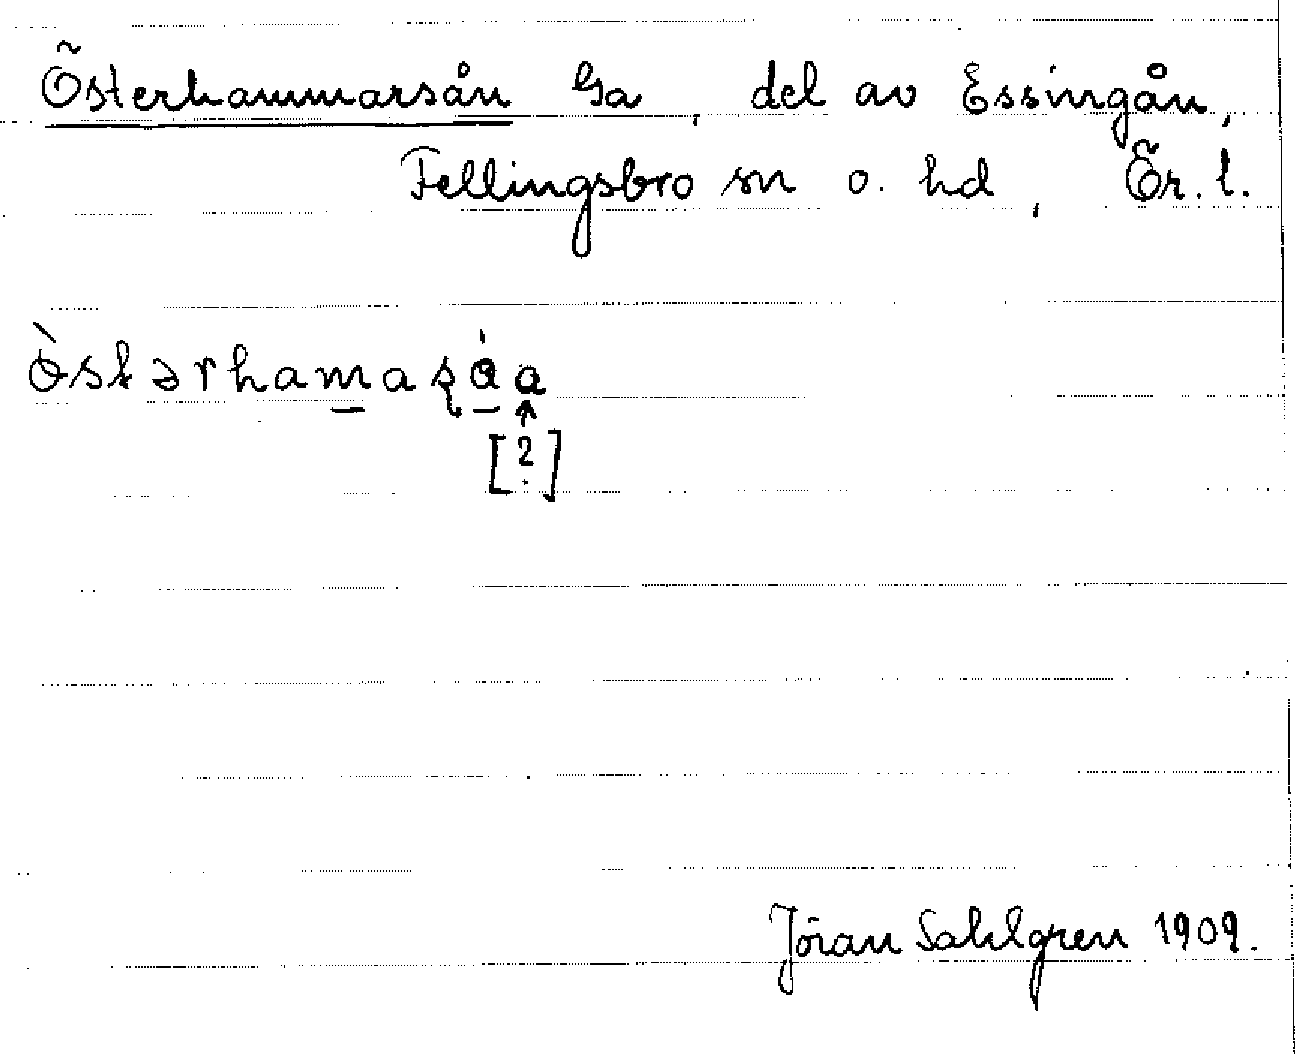 Österhammarsån Ga, del av Essingån,
Fellingsbro sn o. hd, Ör. l.
ὸstərhamaʂáa
[?]
Jöran Sahlgren 1909.